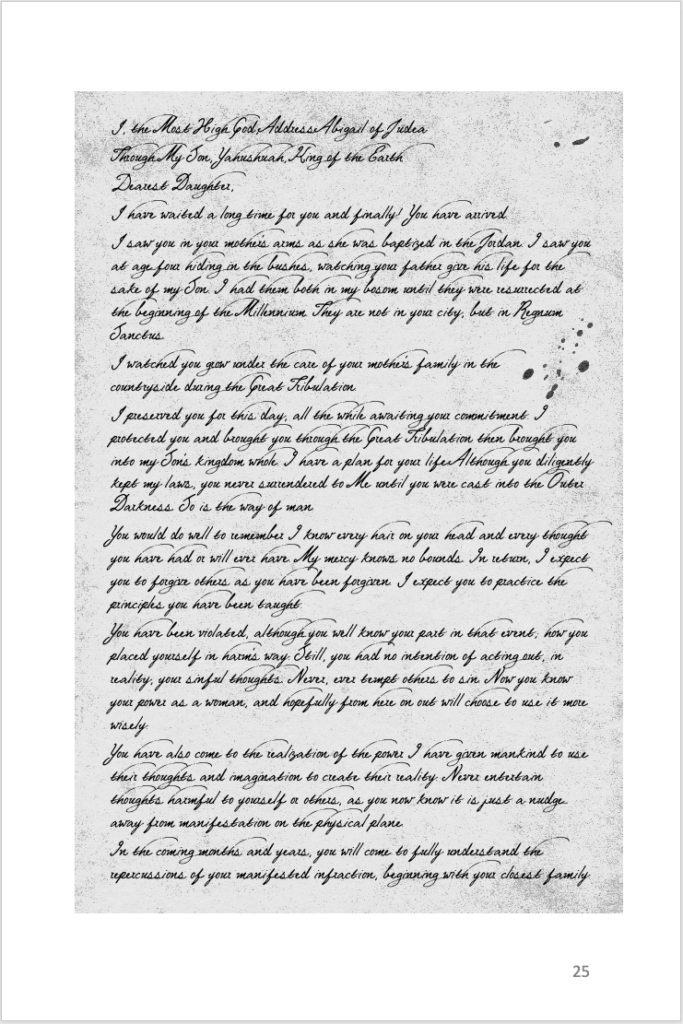 I, the Most High God, Address Abigail of Judea
Through My Son, Yahushuah, King of the Earth
Dearest Daughter,
I have waited a long time for you and finally! You have arrived.
I saw you in your mother's arms as she was baptized in the Jordan. I saw you
at age four hiding in the bushes, watching your father give his life for the
sake of my Son. I had them both in my bosom until they were resurrected at
the beginning of the Millennium. They are not in your city, but in Regnum
Sanctus.
I watched you grow under the care of your mother's family in the
countryside during the Great Tribulation.
I preserved you for this day, all the while awaiting your commitment. I
protected you and brought you through the Great Tribulation then brought you
into my Son's kingdom whole. I have a plan for your life. Although you diligently
kept my laws, you never surrendered to Me until you were cast into the Outer
Darkness. So is the way of man.
You would do well to remember I know every hair on your head and every thought
you have had or will ever have. My mercy knows no bounds. In return, I expect
you to forgive others as you have been forgiven. I expect you to practice the
principles you have been taught.
You have been violated, although you well know your part in that event; how you
placed yourself in harm's way. Still, you had no intention of acting out, in
reality, your sinful thoughts. Never, ever tempt others to sin. Now you know
your power as a woman, and hopefully from here on out will choose to use it more
wisely.
You have also come to the realization of the power I have given mankind to use
their thoughts and imagination to create their reality. Never entertain
thoughts harmful to yourself or others, as you now know it is just a nudge
away from manifestation on the physical plane.
In the coming months and years, you will come to fully understand the
repercussions of your manifested infraction, beginning with your closest family.
25